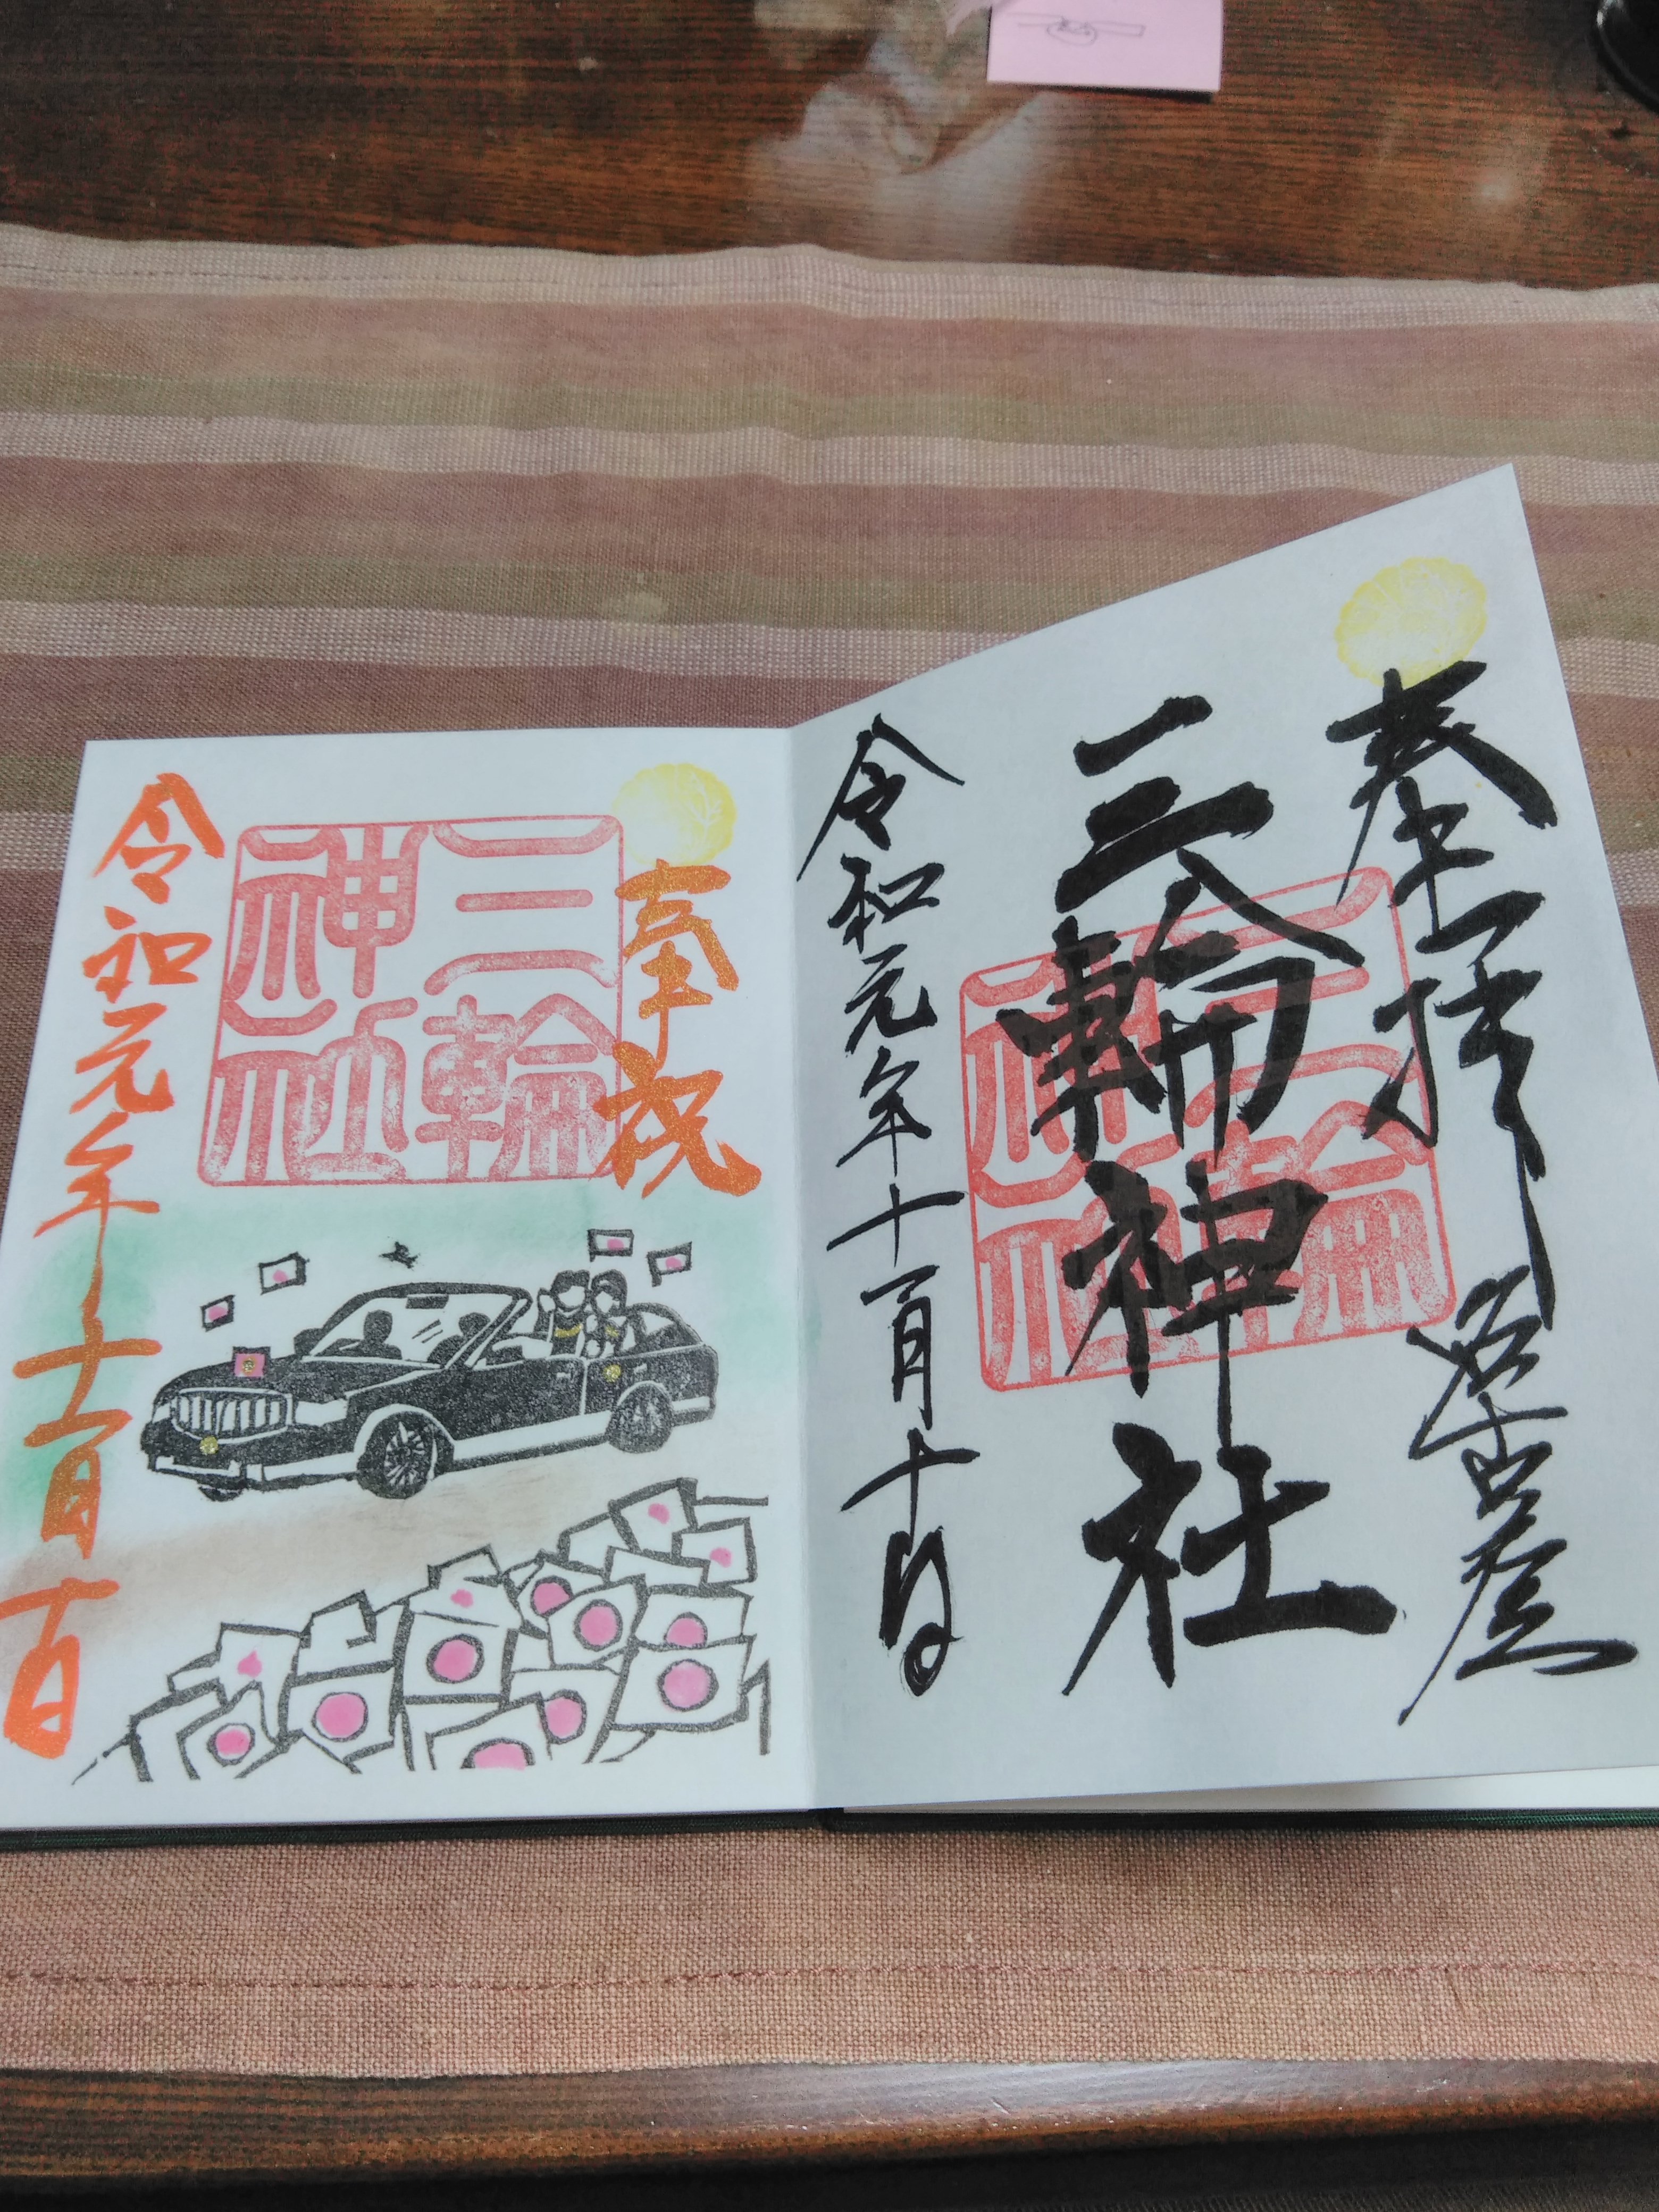 奉拝 名古屋
三輪神社
三輪
神社
令和元年十一月十日
奉祝
三輪
神社
令和元年十一月十日